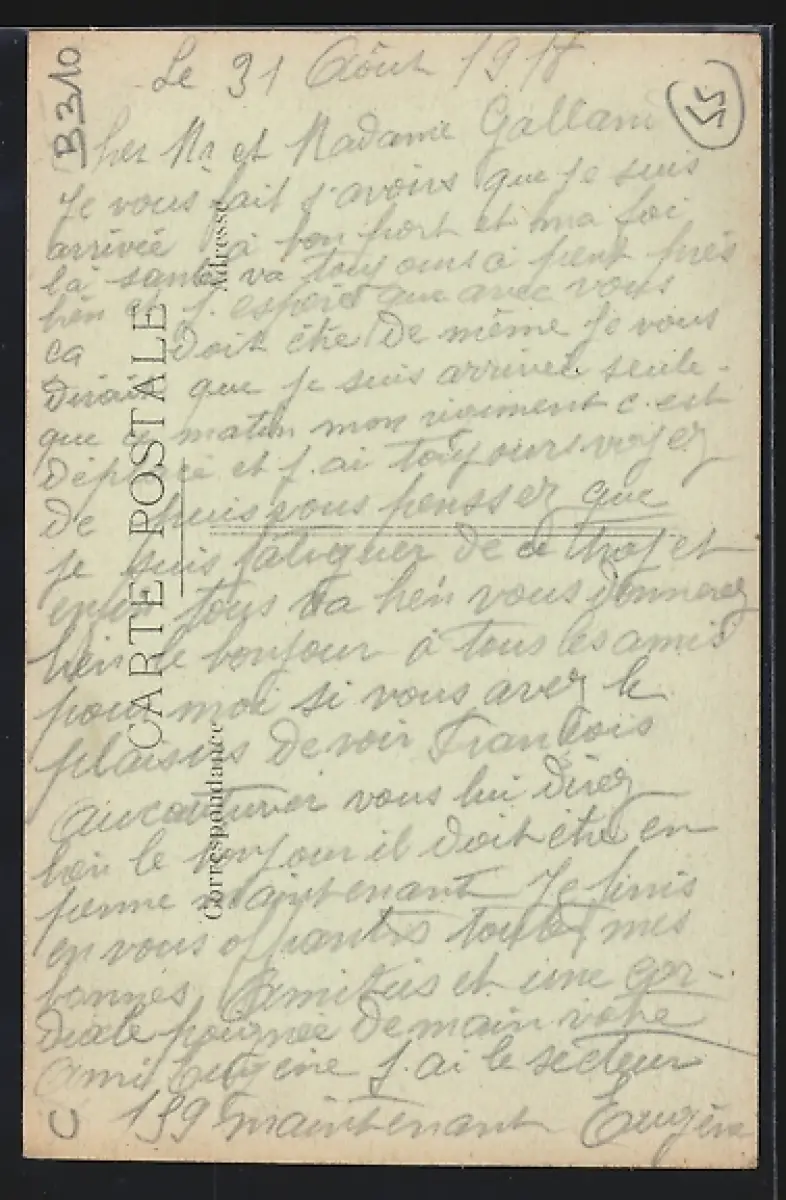 B310
Le 31 Août 1918
55
Cher Mr et Madame Galland
Je vous fait s'avoirs que je suis
arrivée à bon port et ma foi
la santé va toujours à peut près
bien et j'espère que avec vous
ça doit être De même Je vous
Dirait que je suis arrivée seule-
que ce matin mon régiment c'est
Déplacé et j'ai toujours voyager
De puis vous pensser que
je suis fatiguer De ce trajet
enfin tous va bien vous donnerez
bien le bonjour à tous les amis
pour moi si vous avez le
plaisirs De voir François
vous lui Direz
bien le bonjour il Doit être en
perme maintenant Je finis
en vous offrantes toutes mes
bonnes Amitiés et une cor-
diale poignée De main votre
Ami Eugène j'ai le secteur
C 139 maintenant Eugène
CARTE POSTALE
Correspondance
Adresse